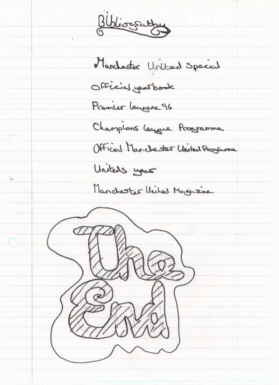 Bibliography
Manchester United Special
Official yearbook
Premier league 96
Champions league Programme
Offical Manchester United Programme
Uniteds year
Manchester United Magazine
The
End